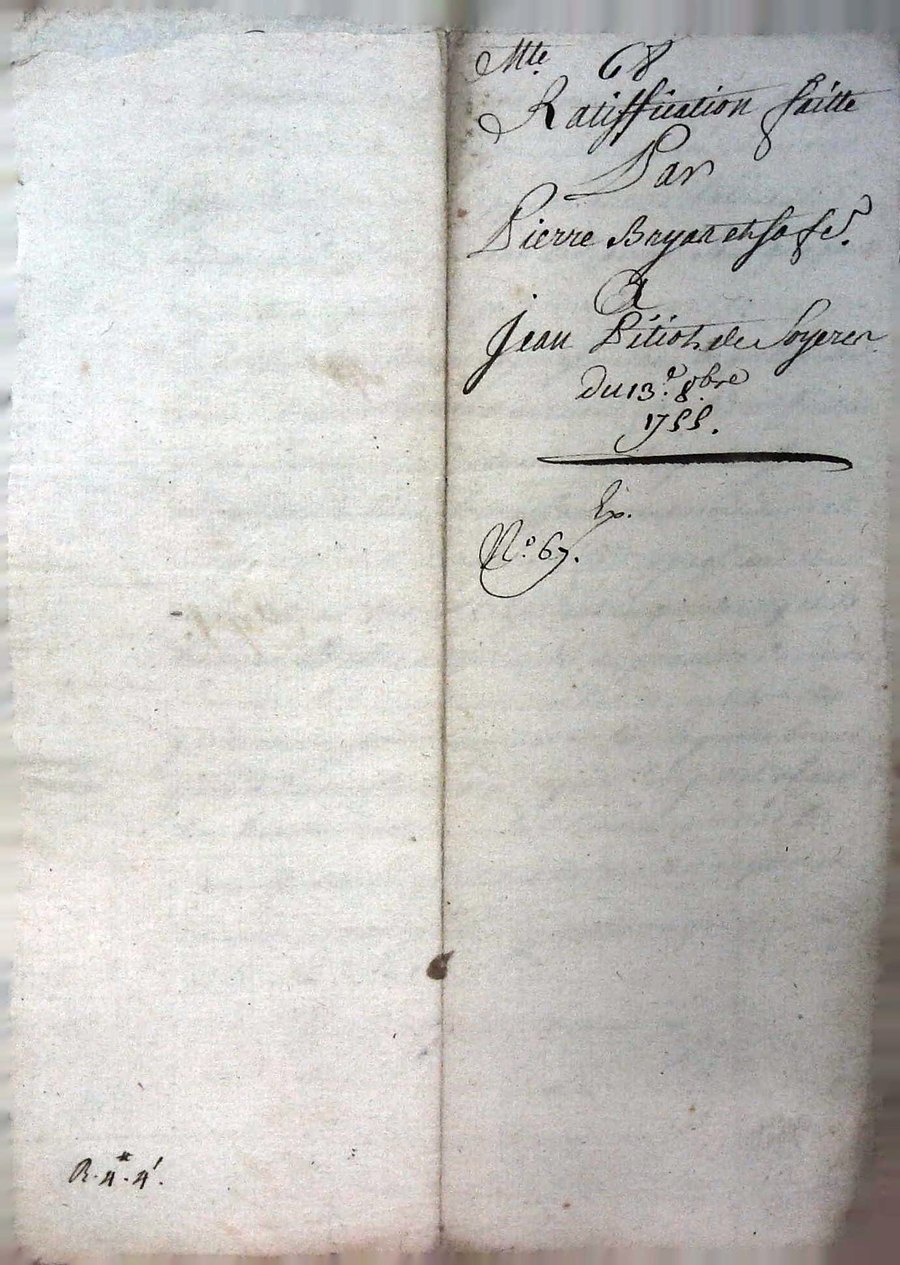 Mte. 68
Ratiffication faitte
Par
Pierre Bayon et sa fe.
A
Jean Pitiot de Soyeren
Du 13e. 8bre
1755.
Ex.
No. 67.
R. 4#. 4s.